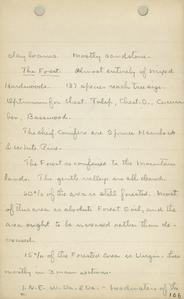 clay loams. Mostly sandstone.
The Forest. Almost entirely of Mixed
Hardwoods. 137 species reach tree size.
Optimum for Chest. Tulip, Chest. O., Cucum-
ber, Basswood.
The chief Conifers are Spruce Hemlock
& White Pine.
The Forest is confined to the Mountain
lands. The gentle valleys are all cleared.
60% of the area is still forested. Most
of this area is absolute Forest Soil, and the
area ought to be increased rather than de-
creased.
15% of the Forested Area is Virgin. Lies
mostly in 3 main sections.
1. N.E. W.Va. & Va. - headwaters of the
166